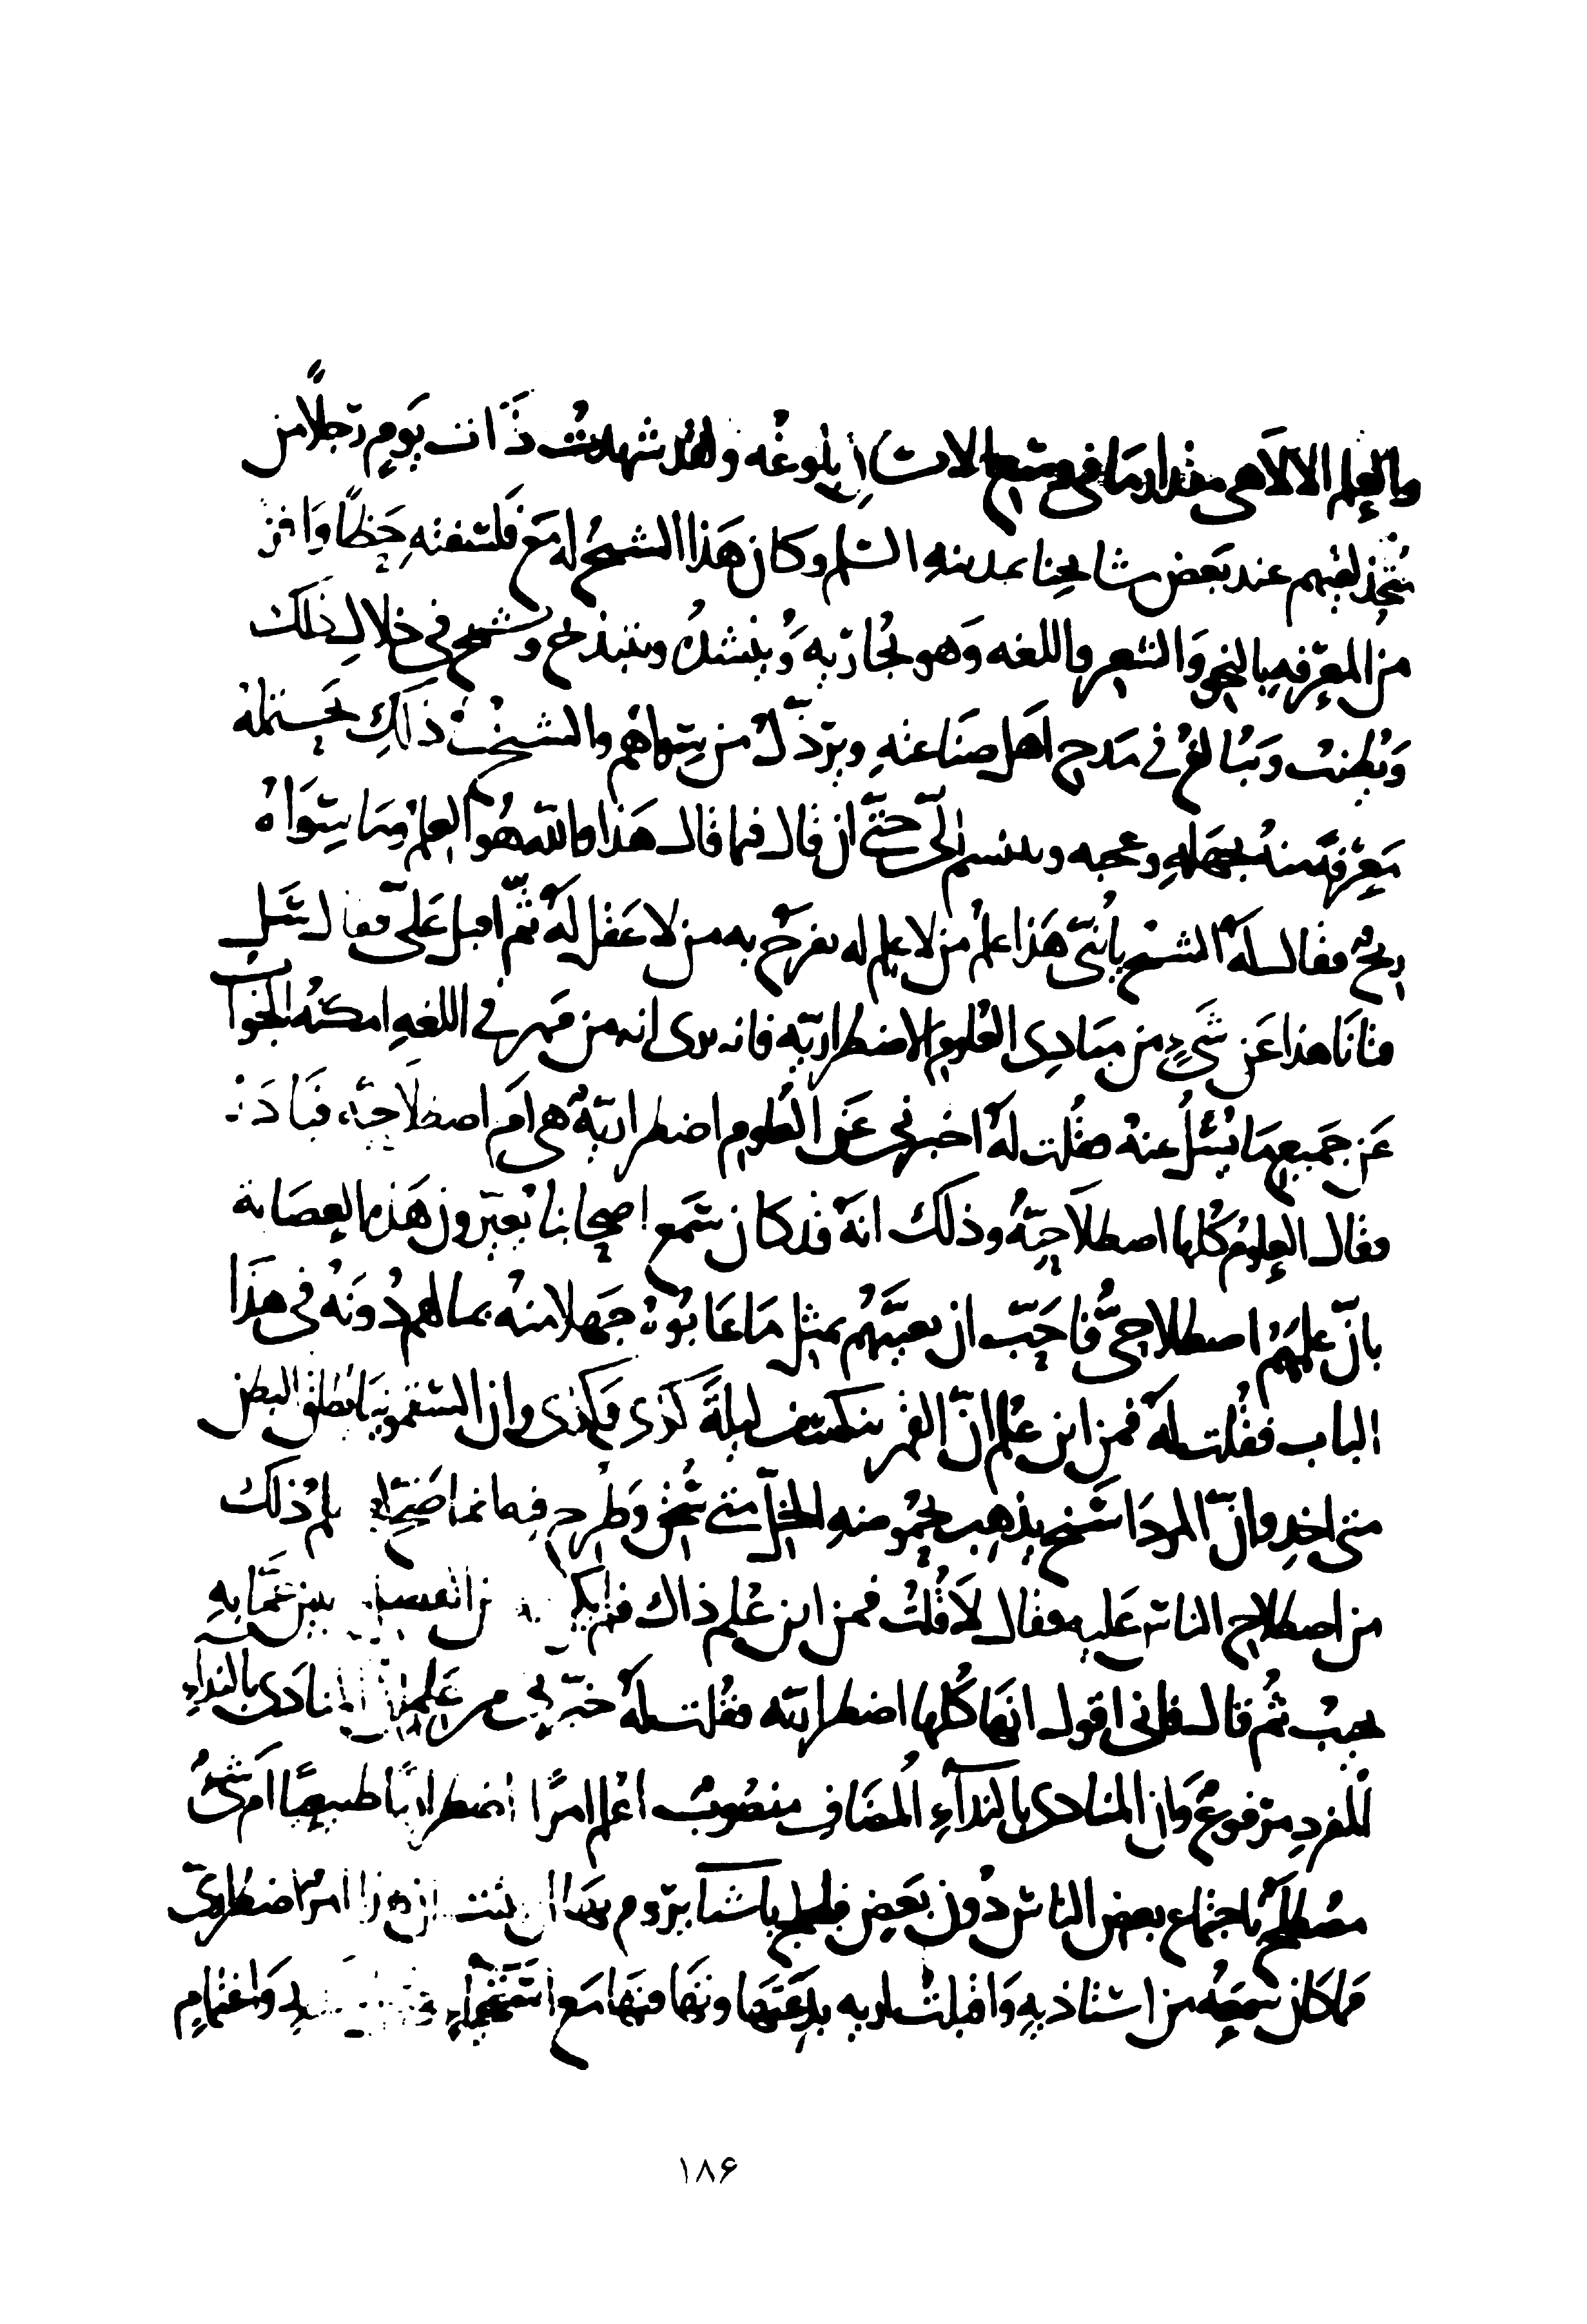 والعلم الالاهى مقدار ما فى وسع الانسان بلوغه ولقد شهدت ذات يوم رجلاً من
متحذلقيهم عند بعض مشايخنا بمدينه السلم وكان هذا الشيخ له مع فلسفته حظاً وافر
من المعرفه بالنحو والشعر واللغه وهو يجاريه وينشده ويتبذخ ويشمخ فى خلال ذلك
ويطنب ويبالغ فى مدح اهل صناعته ويرذل من سواهم والشيخ فى ذلك يحتمله
معرفة منه بجهله وعجبه ويتبسم الىّ حتّى ان قال فيما قال هذا والله هو العلم وما سواه
ريح فقال له الشيخ يا بنى هذا علم من لا علم له يفرح به من لا عقل له ثمّ اقبل علىّ فقال سل
فتانا هذا عن شىء من مبادى العلوم الاضطراريّه فانه يرى انه من مهر فى اللغه امكنه الجواب
عن جميع ما يسئل عنه فقلت له اخبرنى عن العلوم اضطراريّة هى ام اصطلاحيّه فبادر
فقال العلوم كلها اصطلاحيّة وذلك انه قد كان سمع اصحابنا يعيّرون هذه العصابة
بانّ علمهم اصطلاحىّ فاحبّ ان يعيبهم بمثل ما عابوه جهلا منه بما لهم دونه فى هذا
الباب فقلت له فمن اين علم انّ القمر ينكسف ليلة كذى وكذى وان السقمونيا يطلق البطن
متى اخذ وانّ المرداسنج يذهب بحموضه الخلّ متى سحق وطرح فيه انما صحّ علم ذلك
من اصطلاح الناس عليه فقال لا قلت فمن اين علم ذاك فلم يكن من التعسف يبين عمّا به
يجيب ثم قال فانى اقول انها كلها اضطراريّه فقلت له خبّرنى عمن علم ان المنادى بالنداء
المفرد مرفوع وان المنادى بالنداء المضاف منصوب اعلم امرًا اضطراريًا طبيعيًا ام شىء
مصطلح باجتماع بعض الناس دون بعض فلجلج باشيا يروم بها ان يثبت ان هذا امر اضطرارىّ
مما كان سمعه من استاذيه واقبلت اريه بدعتها وتهافتها مع واغتمام
١٨۶